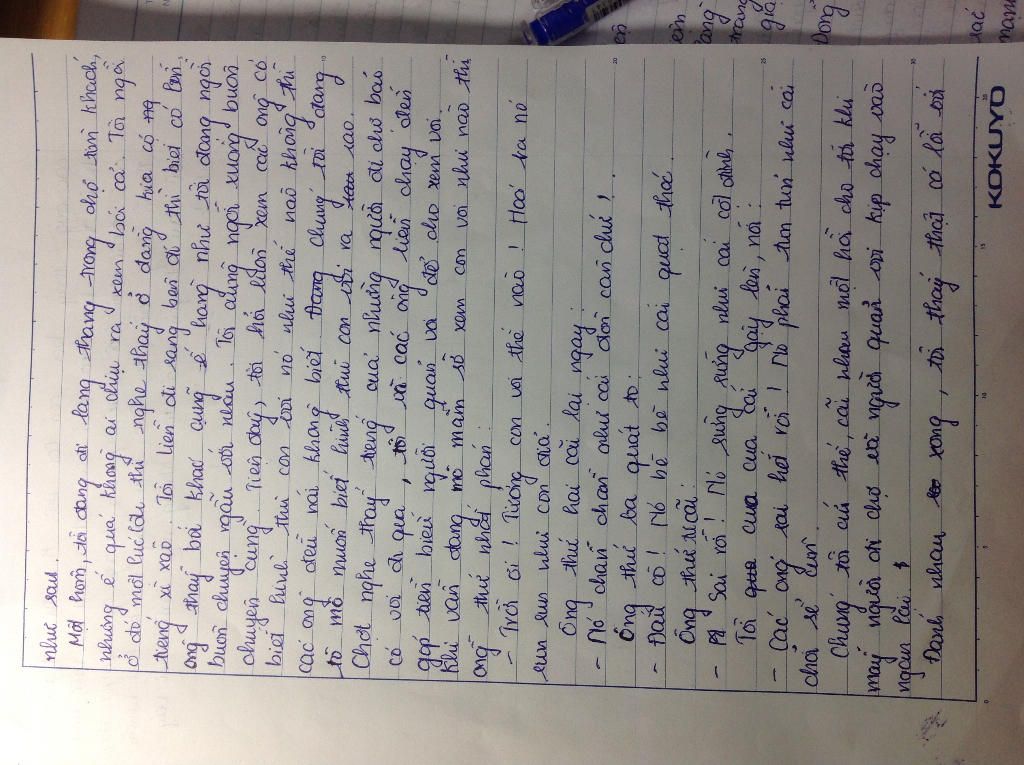 như sau.
Một hôm, tôi đang đi lang thang trong chợ tìm khách,
nhưng ế quá không ai chịu ra xem bói cả. Tôi ngồi
ở đó một lúc lâu thì nghe thấy ở đằng kia có ng
tiếng xì xào. Tôi liền đi sang bên đó thì biết có bốn
ông thầy bói khác cũng ế hàng như tôi đang ngồi
buồn chuyện ngẫu với nhau. Tôi cũng ngồi xuống buôn
chuyện cùng. Tiện đây, tôi hỏi luôn xem các ông có
biết hình thù con voi nó như thế nào không thì
các ông đều nói không biết chúng tôi đang
tò mò muốn biết hình thù con voi ra sao.
Chợt nghe thấy tiếng của những người đi chợ bảo
có voi đi qua, tôi và các ông liền chạy đến
góp tiền biếu người quản voi để cho xem voi.
Khi vẫn đang mò mẫm sờ xem con voi như nào thì
ông thứ nhất phán:
- Trời ơi! Tưởng con voi thế nào! Hoá ra nó
sun sun như con đỉa.
Ông thứ hai cãi lại ngay:
- Nó chần chẫn như cái đòn càn chứ!
Ông thứ ba quát to:
- Đâu có! Nó bè bè như cái quạt thóc.
Ông thứ tư cãi:
- Sai rồi! Nó sừng sững như cái cột đình.
Tôi qua cua của cái gậy lên, nói:
- Các ông sai hết rồi! Nó phải tun tủn như cái
chổi sể cùn.
Chúng tôi cứ thế, cãi nhau một hồi cho tới khi
mấy người đi chợ với người quản voi kịp chạy vào
ngăn lại.
Đánh nhau xong, tôi thấy thật có lỗi với
KOKUYO